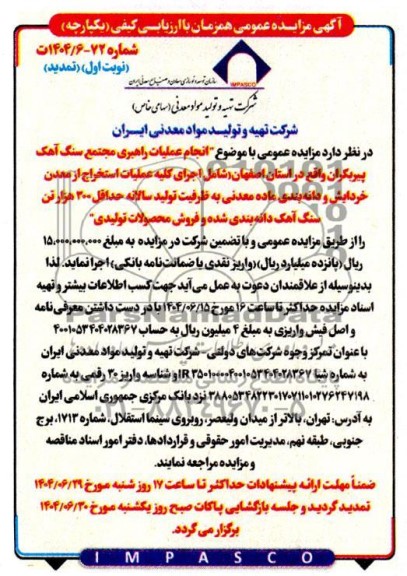 آگهی مزایده عمومی همزمان با ارزیابی کیفی (یکپارچه)
شماره ۷۲-۱۴۰۴/۶ت
(نوبت اول) (تمدید)
IMPASCO
شرکت تهیه و تولید مواد معدنی (سهامی خاص)
شرکت تهیه و تولیـد مواد معدنی ایــران
در نظر دارد مزایده عمومی با موضوع "انجام عملیات راهبری مجتمع سنگ آهک
پیربکران واقع در استان اصفهان (شامل اجرای کلیه عملیات استخراج از معدن
خردایش و دانه‌بندی ماده معدنی به ظرفیت تولید سالانه حداقل ۳۰۰ هزار تن
سنگ آهک دانه‌بندی شده و فروش محصولات تولیدی"
را از طریق مزایده عمومی و با تضمین شرکت در مزایده به مبلغ ۱۵,۰۰۰,۰۰۰,۰۰۰
ریال (پانزده میلیارد ریال) (واریز نقدی یا ضمانت‌نامه بانکی) اجرا نماید. لذا
بدینوسیله از علاقمندان دعوت به عمل می‌آید جهت کسب اطلاعات بیشتر و تهیه
اسناد مزایده حداکثر تا ساعت ۱۶ مورخ ۱۴۰۴/۰۶/۱۵ با در دست داشتن معرفی نامه
و اصل فیش واریزی به مبلغ ۴ میلیون ریال به حساب ۴۰۰۱۰۵۳۴۰۴۰۲۸۳۶۷
با عنوان تمرکز وجوه شرکت‌های دولتی - شرکت تهیه و تولید مواد معدنی ایران
به شماره شبا و شناسه واریز ۳۰ رقمی به شماره
نزد بانک مرکزی جمهوری اسلامی ایران
به آدرس: تهران، بالاتر از میدان ولیعصر، روبروی سینما استقلال، شماره ۱۷۱۳، برج
جنوبی، طبقه نهم، مدیریت امور حقوقی و قراردادها، دفتر امور اسناد مناقصه
و مزایده مراجعه نمایند.
ضمناً مهلت ارائه پیشنهادات حداکثر تا ساعت ۱۷ روز شنبه مورخ ۱۴۰۴/۰۶/۲۹
تمدید گردید و جلسه بازگشایی پاکات صبح روز یکشنبه مورخ ۱۴۰۴/۰۶/۳۰
برگزار می‌گردد.
I M P A S C O